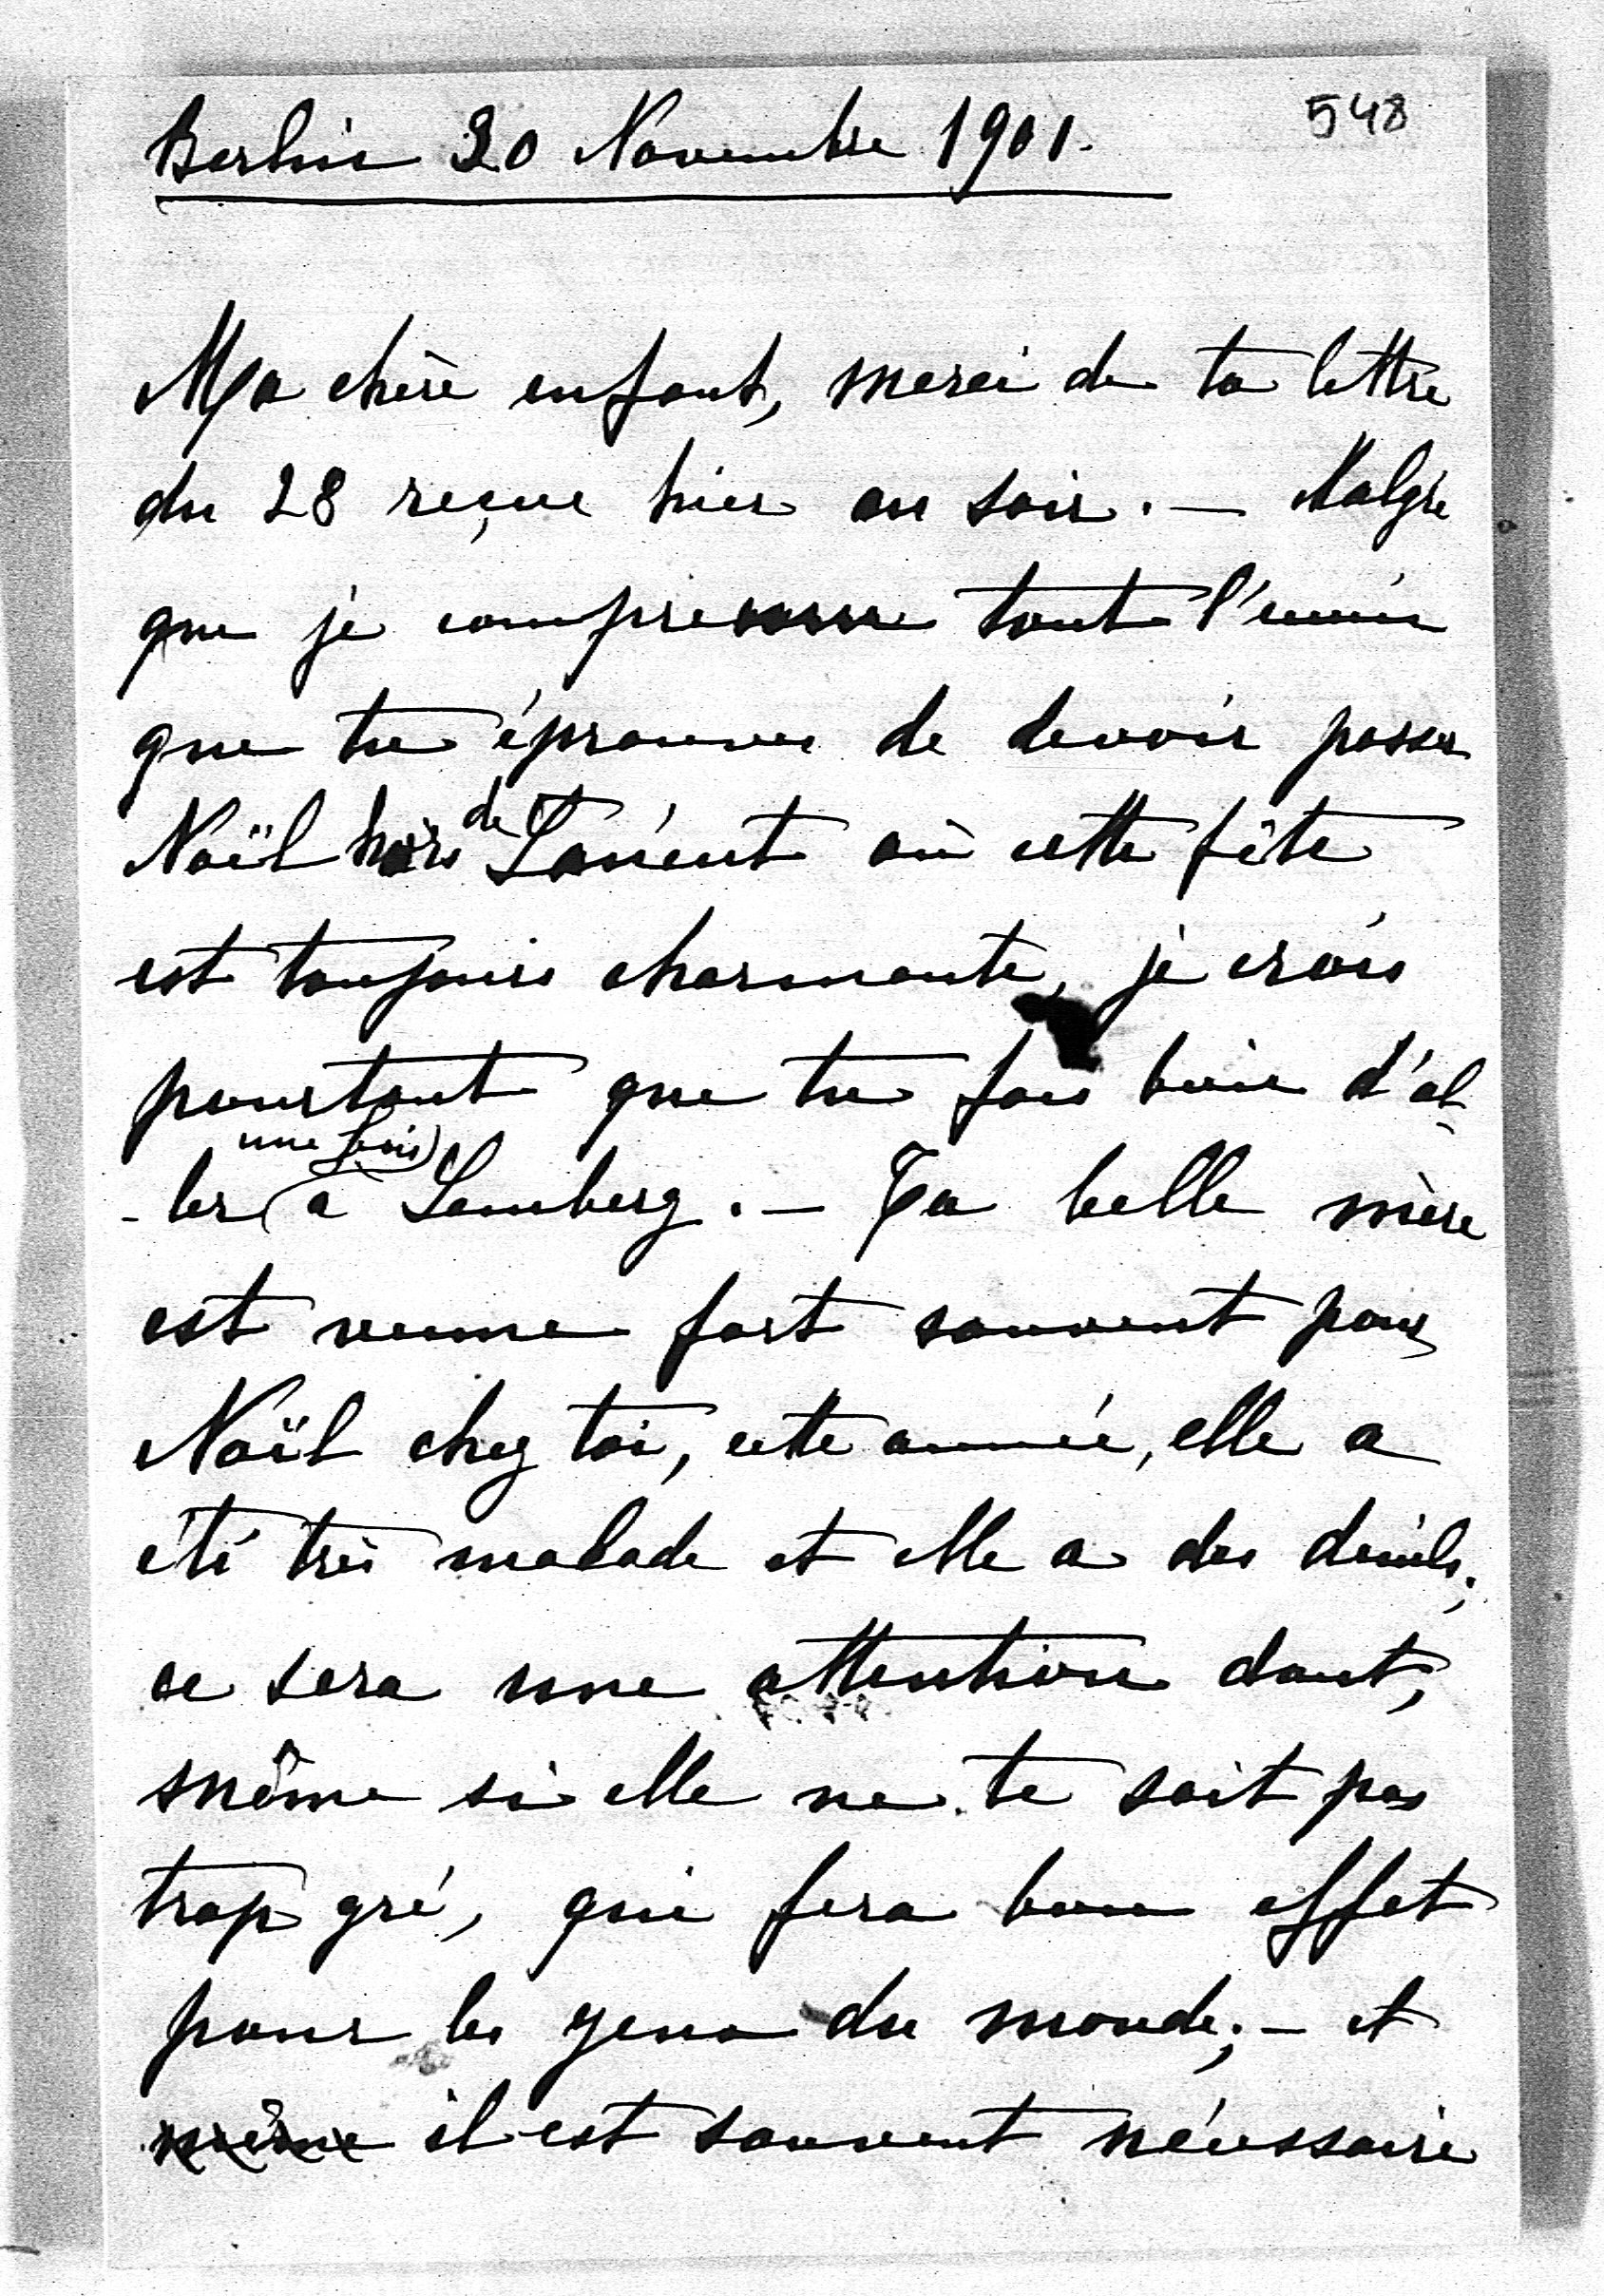 548
Berlin 30 Novembre 1901.
Ma chère enfant, merci de ta lettre
du 28 reçue hier au soir. — Malgré
que je comprenne tout l'ennui
que tu éprouves de devoir passer
Noël hors de Lancut où cette fête
est toujours charmante, je crois
pourtant que tu fais bien d'al-
-ler (une fois) à Lemberg. — Ta belle mère
est venue fort souvent pour
Noël chez toi, cette année, elle a
été très malade et elle a des deuils;
ce sera une attention dont,
même si elle ne te sait pas
trop gré, qui fera bon effet
pour les yeux du monde; — et
même il est souvent nécessaire